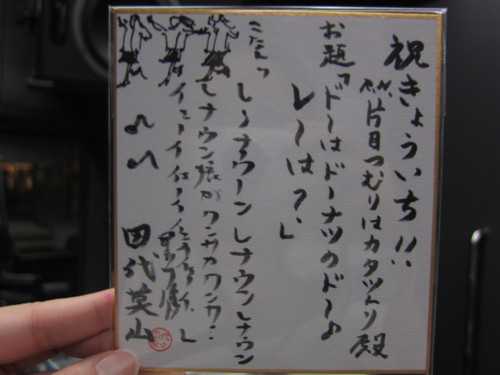 祝きょういち!!
片目つむりはカタツムリ殿
お題「ドーはドーナツのドー♪
レーは?」
こたえ「
レーナウーン レナウン レナウン
レナウン娘が ワンサカ ワンサカ
イェーイ イェーイ
♪
田代英山